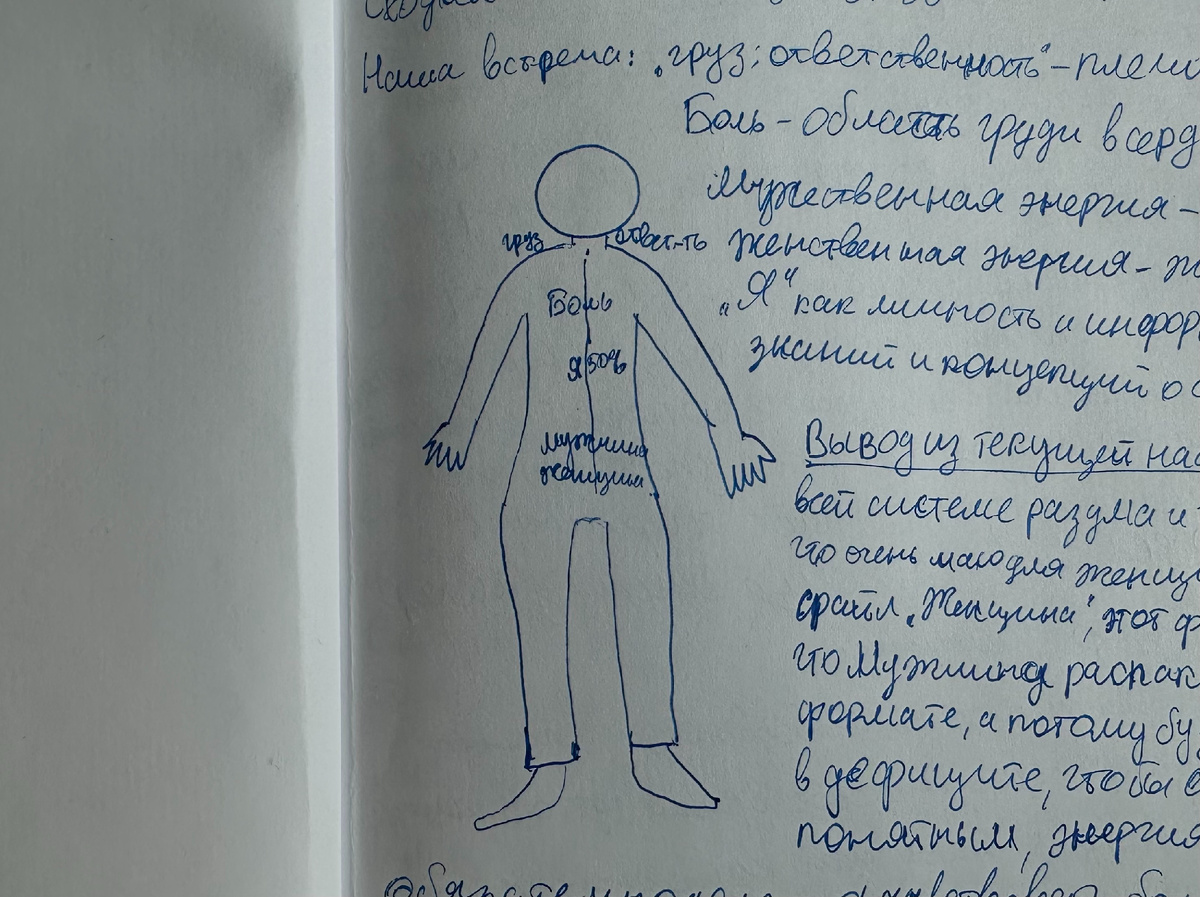 Наша встреча: „груз; ответственность" – плеч
Боль – область груди в серд
Мужественная энергия –
груз
ответ-ть
женственная энергия – ж
Боль
„Я" как личность и инфор
Я 50%
знаний и концепций о с
Вывод из текущей нас
мужчина
женщина
всей системе разума и
что очень мало для женщ
файл „Женщина", этот ф
что Мужчина распак
формате, а потому бу
в дефиците, чтобы
понятным, энергия